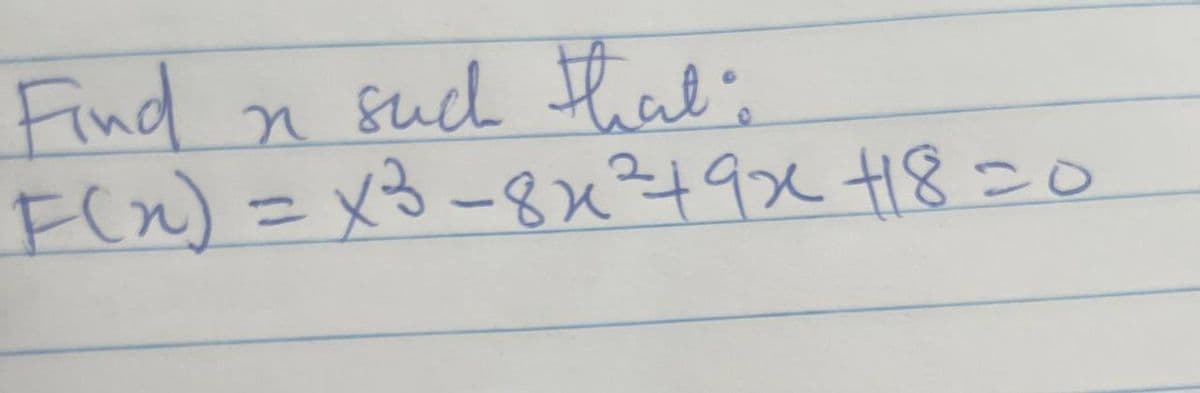 Find x such that:
F(x) = x3 - 8x²+9x +18 = 0